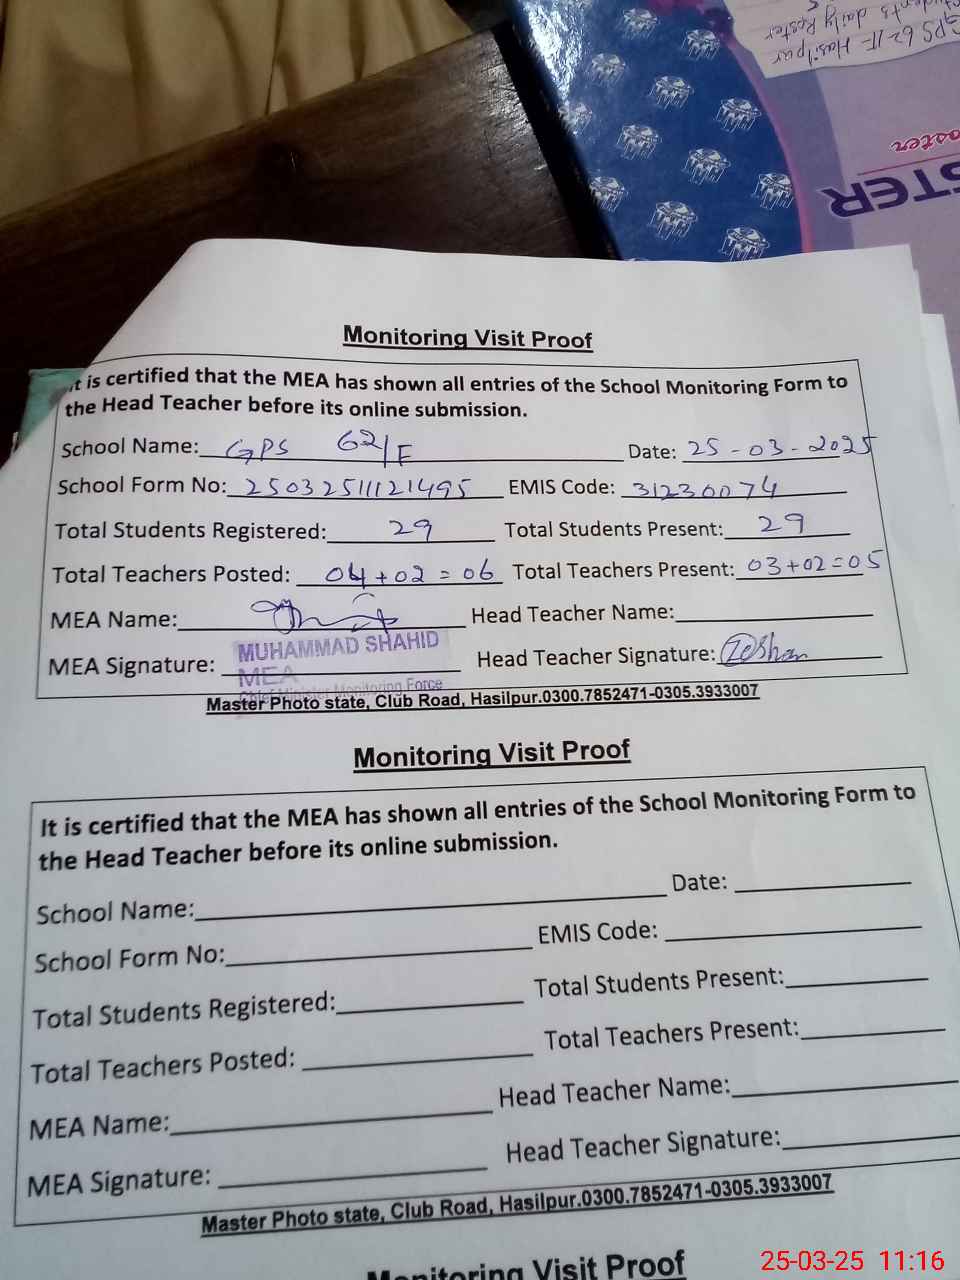 GPS 62/F Hasilpur
Students daily Roster
STER
Monitoring Visit Proof
It is certified that the MEA has shown all entries of the School Monitoring Form to
the Head Teacher before its online submission.
School Name: GPS 62/F Date: 25-03-2025
School Form No: 25032511121495 EMIS Code: 31230074
Total Students Registered: 29 Total Students Present: 29
Total Teachers Posted: 04+02=06 Total Teachers Present: 03+02=05
MEA Name: Head Teacher Name:
MUHAMMAD SHAHID
MEA Signature: Head Teacher Signature: Zeshan
MEA
Chief Minister Monitoring Force
Master Photo state, Club Road, Hasilpur.0300.7852471-0305.3933007
Monitoring Visit Proof
It is certified that the MEA has shown all entries of the School Monitoring Form to
the Head Teacher before its online submission.
School Name: Date:
School Form No: EMIS Code:
Total Students Registered: Total Students Present:
Total Teachers Posted: Total Teachers Present:
MEA Name: Head Teacher Name:
MEA Signature: Head Teacher Signature:
Master Photo state, Club Road, Hasilpur.0300.7852471-0305.3933007
Monitoring Visit Proof
25-03-25 11:16